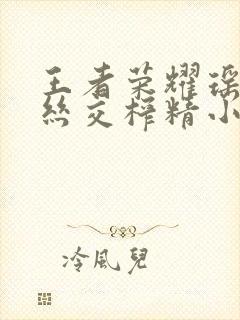 王者荣耀瑶
丝交榨精小
冷風兒